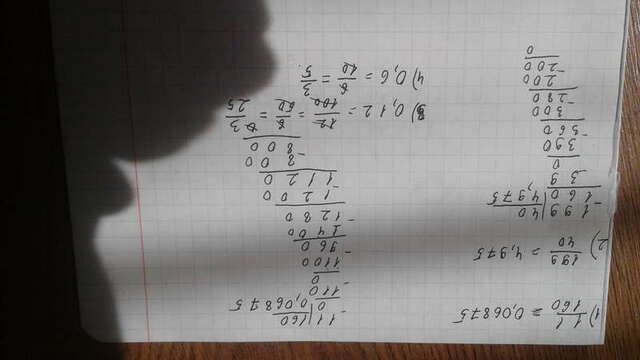 1) 11/160 = 0,06875
2) 199/40 = 4,975
199|40
-160|4,975
39
0
390
-360
300
-280
200
-200
0
-11|160
0|0,06875
-110
0
-1100
960
-1400
1280
-1200
1120
-800
800
0
3) 0,12 = 12/100 = 6/50 = 3/25
4) 0,6 = 6/10 = 3/5